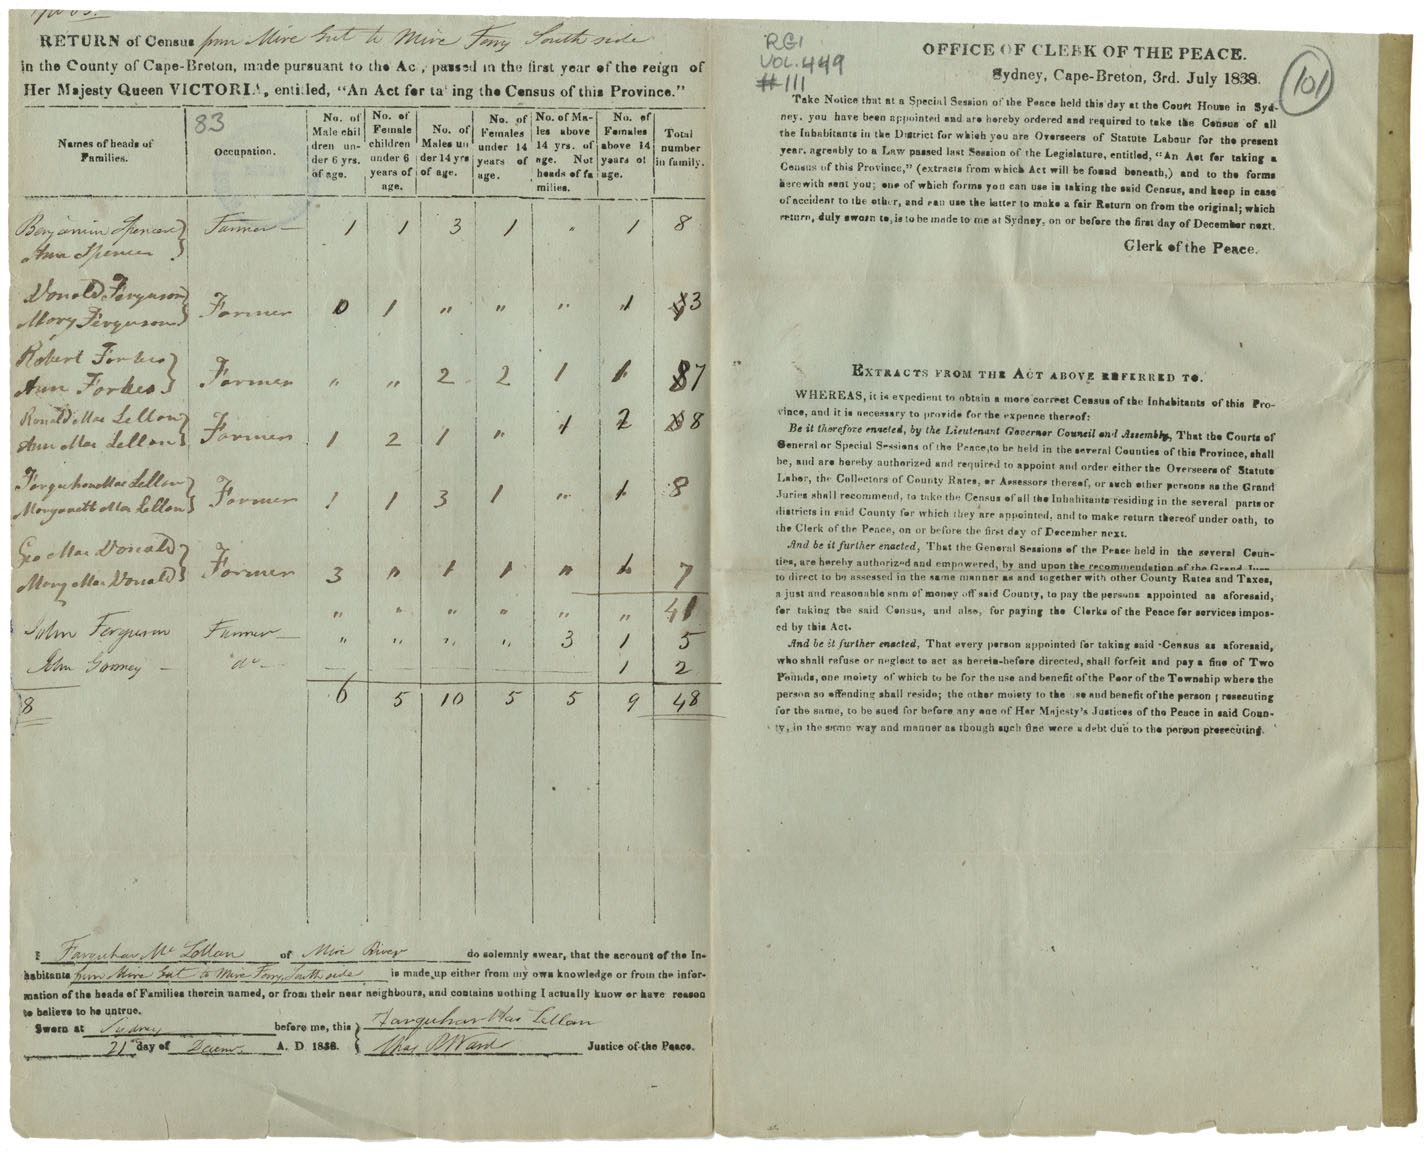 RETURN of Census from Mire Gut to Mire Ferry South side
in the County of Cape-Breton, made pursuant to the Act, passed in the first year of the reign of
Her Majesty Queen VICTORIA, entitled, "An Act for taking the Census of this Province."
83
Names of heads of Families. Occupation. No. of Male children under 6 yrs. of age. No. of Female children under 6 years of age. No. of Males under 14 yrs of age. No. of Females under 14 years of age. No. of Males above 14 yrs. of age. Not heads of families. No. of Females above 14 years of age. Total number in family.
Benjamin Spencer } Farmer 1 1 3 1 " 1 8
Ann Spencer }
Donald Ferguson } Farmer 0 1 " " " 1 3
Mary Ferguson }
Robert Forbes } Farmer " " 2 2 1 1 7
Ann Forbes }
Ronald Mac Lellan } Farmer 1 2 1 " 1 2 8
Ann Mac Lellan }
Farquhar Mac Lellan } Farmer 1 1 3 1 " 1 8
Margarett Mac Lellan }
Geo Mac Donald } Farmer 3 " 1 1 " 1 7
Mary Mac Donald }
" " " " " " 41
John Ferguson Farmer " " " " 3 1 5
John "Do" 1 2
8 6 5 10 5 5 9 48
I Farquhar Mc Lellan of Mire River do solemnly swear, that the account of the In-
habitants from Mire Gut to Mire Ferry, South side is made up either from my own knowledge or from the infor-
mation of the heads of Families therein named, or from their near neighbours, and contains nothing I actually know or have reason
to believe to be untrue.
Sworn at Sydney before me, this } Farquhar Mac Lellan
21st day of Decemr. A. D 1838. { Chas R Ward Justice of the Peace.
RG1
VOL. 449
#111
101
OFFICE OF CLERK OF THE PEACE.
Sydney, Cape-Breton, 3rd. July 1838.
Take Notice that at a Special Session of the Peace held this day at the Court House in Syd-
ney, you have been appointed and are hereby ordered and required to take the Census of all
the Inhabitants in the District for which you are Overseers of Statute Labour for the present
year, agreably to a Law passed last Session of the Legislature, entitled, "An Act for taking a
Census of this Province," (extracts from which Act will be found beneath,) and to the forms
herewith sent you; one of which forms you can use in taking the said Census, and keep in case
of accident to the other, and can use the latter to make a fair Return on from the original; which
return, duly sworn to, is to be made to me at Sydney, on or before the first day of December next.
Clerk of the Peace.
EXTRACTS FROM THE ACT ABOVE REFERRED TO.
WHEREAS, it is expedient to obtain a more correct Census of the Inhabitants of this Pro-
vince, and it is necessary to provide for the expence thereof:
Be it therefore enacted, by the Lieutenant Governor Council and Assembly, That the Courts of
General or Special Sessions of the Peace, to be held in the several Counties of this Province, shall
be, and are hereby authorized and required to appoint and order either the Overseers of Statute
Labor, the Collectors of County Rates, or Assessors thereof, or such other persons as the Grand
Juries shall recommend, to take the Census of all the Inhabitants residing in the several parts or
districts in said County for which they are appointed, and to make return thereof under oath, to
the Clerk of the Peace, on or before the first day of December next.
And be it further enacted, That the General Sessions of the Peace held in the several Coun-
ties, are hereby authorized and empowered, by and upon the recommendation of the Grand Jury
to direct to be assessed in the same manner as and together with other County Rates and Taxes,
a just and reasonable sum of money off said County, to pay the persons appointed as aforesaid,
for taking the said Census, and also, for paying the Clerks of the Peace for services impos-
ed by this Act.
And be it further enacted, That every person appointed for taking said Census as aforesaid,
who shall refuse or neglect to act as herein-before directed, shall forfeit and pay a fine of Two
Pounds, one moiety of which to be for the use and benefit of the Poor of the Township where the
person so offending shall reside; the other moiety to the use and benefit of the person prosecuting
for the same, to be sued for before any one of Her Majesty's Justices of the Peace in said Coun-
ty, in the same way and manner as though such fine were a debt due to the person prosecuting.